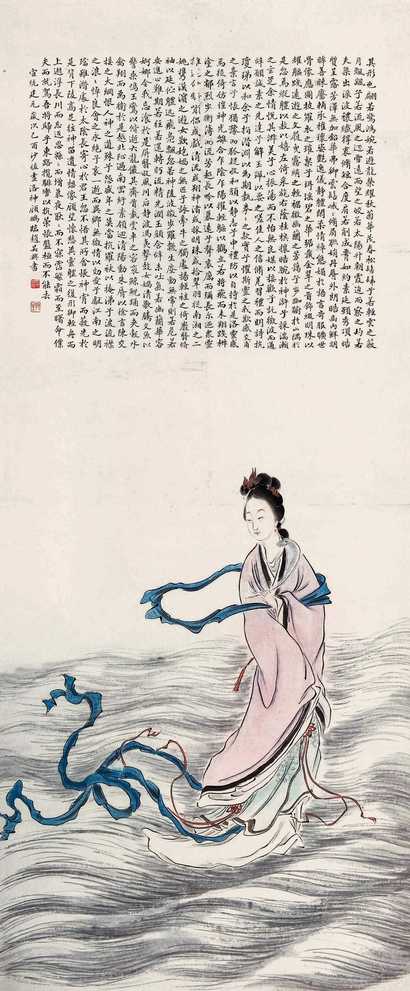 其形也翩若驚鴻婉若遊龍榮耀秋菊華茂春松髣髴兮若輕雲之蔽
月飄颻兮若流風之迴雪遠而望之皎若太陽升朝霞迫而察之灼若
芙蕖出淥波穠纖得衷修短合度肩若削成腰如約素延頸秀項皓
質呈露芳澤無加鉛華弗御雲髻峨峨修眉聯娟丹脣外朗皓齒內鮮明
眸善睞靨輔承權瓌姿艷逸儀靜體閑柔情綽態媚於語言奇服曠世
骨像應圖披羅衣之璀粲兮珥瑤碧之華琚戴金翠之首飾綴明珠以
耀軀踐遠遊之文履曳霧綃之輕裾微幽蘭之芳藹兮步踟躕於山隅於
是忽焉縱體以遨以嬉左倚采旄右蔭桂旗攘皓腕於神滸兮採湍瀨
之玄芝余情悅其淑美兮心振蕩而不怡無良媒以接歡兮託微波而通
辭願誠素之先達兮解玉佩以要之嗟佳人之信修羌習禮而明詩抗
瓊珶以和予兮指潛淵以為期執眷眷之款實兮懼斯靈之我欺感交甫
之棄言兮悵猶豫而狐疑收和顏以靜志兮申禮防以自持於是洛靈感
焉徙倚彷徨神光離合乍陰乍陽竦輕軀以鶴立若將飛而未翔踐椒
塗之郁烈步蘅薄而流芳超長吟以永慕兮聲哀厲而彌長爾迺眾靈
雜遝命儔嘯侶或戲清流或翔神渚或採明珠或拾翠羽從南湘之二
妃攜漢濱之遊女嘆匏瓜之無匹兮詠牽牛之獨處揚輕袿之猗靡兮翳修
袖以延佇體迅飛鳧飄忽若神凌波微步羅韈生塵動無常則若危若
安進止難期若往若還轉眄流精光潤玉顏含辭未吐氣若幽蘭華容
婀娜令我忘餐於是屏翳收風川后靜波馮夷擊鼓女媧清歌騰文魚以
警乘鳴玉鸞以偕逝六龍儼其齊首載雲車之容裔鯨鯢踊而夾轂水
禽翔而為衛於是越北沚過南岡紆素領迴清陽動朱脣以徐言陳交
接之大綱恨人神之道殊兮怨盛年之莫當抗羅袂以掩涕兮淚流襟
之浪浪悼良會之永絕兮哀一逝而異鄉無微情以效愛兮獻江南之明
璫雖潛處於太陰長寄心於君王忽不悟其所舍悵神宵而蔽光於
是背下陵高足往神留遺情想像顧望懷愁冀靈體之復形御輕舟而
上遡浮長川而忘返思緜緜而增慕夜耿耿而不寐霑繁霜而至曙命僕
夫而就駕吾將歸乎東路攬騑轡以抗策悵盤桓而不能去
宣統建元歲次己酉少梅畫洛神顧鵬臨趙孟